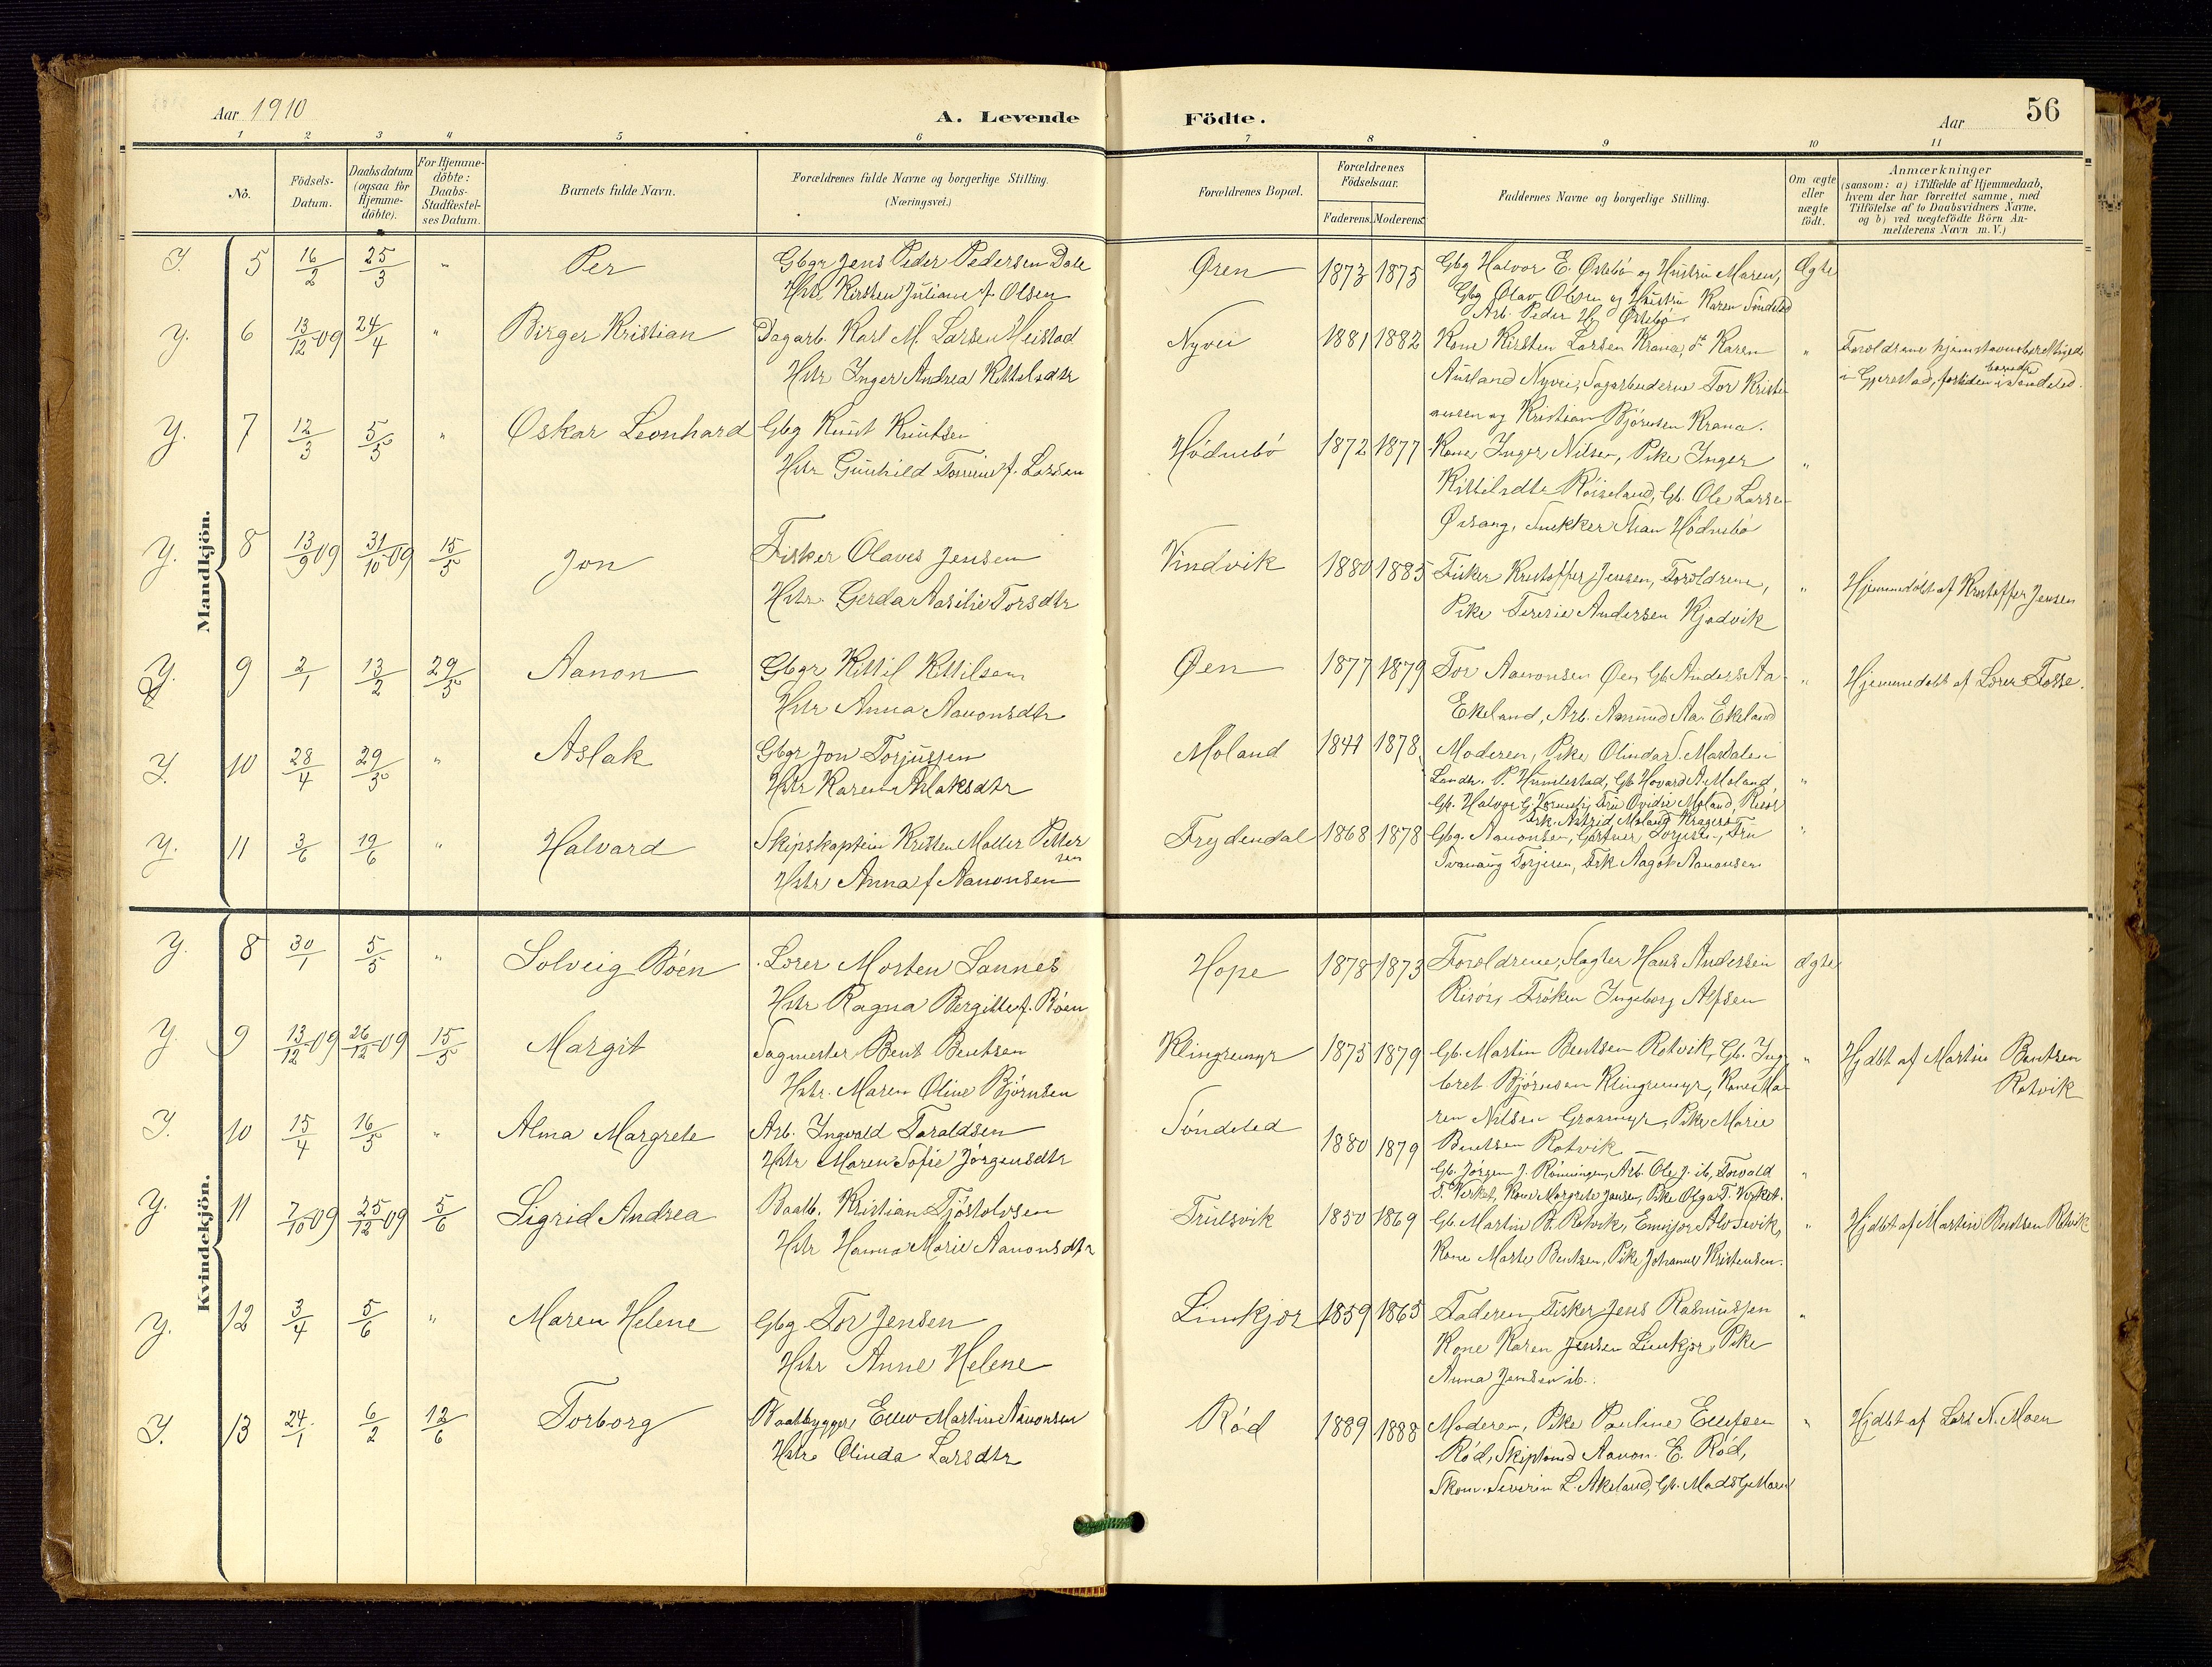 Aar 1910
A. Levende
Födte.
Aar
56
1 2 3 4 5 6 7 8 9 10 11
No.
Födsels-
Datum.
Daabsdatum
(ogsaa for
Hjemme-
döbte).
For Hjemme-
döbte:
Daabs-
Stadfæstel-
ses Datum.
Barnets fulde Navn.
Forældrenes fulde Navne og borgerlige Stilling.
(Næringsvei.)
Forældrenes Bopæl.
Forældrenes
Födselsaar.
Faderens. Moderens.
Faddernes Navne og borgerlige Stilling.
Om ægte
eller
uægte
födt.
Anmærkninger
(saasom: a) i Tilfælde af Hjemmedaab,
hvem der har forrettet samme, med
Tilföielse af to Daabsvidners Navne,
og b) ved uægtefödte Börn An-
melderens Navn m. V.)
Mandkjön.
5 16/2 25/3 " Per Gbgr Jens Peder Pedersen Dale Øren 1873 1875 Gbg Halvor E. Østebö og Hustru Maren, Ægte
Hstr Kirsten Juliane f. Olsen Gbg Olav Olsen og Hustru Karen Söndeled
Arb. Peder H. Østebö
6 13/12 09 24/4 " Birger Kristian Dagarb. Karl M. Larsen Meistad Nyvei 1881 1882 Kone Kirsten Larsen Krana, Karen " Foreldrene hjemstavnsberettigede
Hstr Inger Andrea Kittelsdtr Ausland Nyvei, Sagarbeiderne Tor Kristi- i Gjerestad, fortiden boende i Söndeled.
ansen og Kristian Björnsen Krana.
7 12/3 5/5 " Oskar Leonhard Gbg Knut Knutsen Hödnebö 1872 1877 Kone Inger Nilsen, Pike Inger "
Hstr Gunhild Tomine f. Larsen Kittilsdtr Röiseland, Gb. Ole Larsen
Hödnebö
8 13/9 09 31/10 09 15/5 Jon Fisker Olaves Jensen Vindvik 1880 1885 Fisker Kristoffer Jensen, Foreldrene, " Hjemmedöbt af Kristoffer Jensen
Hstr. Gerda Aasilie Torsdtr Pike Teresie Andersen Kjødvik
9 2/1 13/2 29/5 Aanon Gbgr Kittil Kittilsen Øen 1877 1879 Tor Aanonsen Øen, Gb. Anders Aa. " Hjemmedöbt af Lærer Fosse.
Hstr Anna Aanonsdtr Ekeland, Arb. Amund Aa. Ekeland
10 28/4 29/5 " Aslak Gbgr Jon Torjussen Moland 1841 1878 Moderen, Pike Olinda S. Madalen
Hstr Karen Aslaksdtr Landh. P. Humlestad, Gb. Hovard A. Moland, "
Gb. Halvor G. Fru Ovidie Moland, Risör
Frk. Astrid Moland Kragerö
11 3/6 19/6 " Halvard Skipskaptein Kristen Møller Petter Frydendal 1868 1878 Gbg. Aanonsen, Gartner Torjesen, Fru "
sen
Hstr Anna f Aanonsen Torjesen, Frk Aagot Aanonsen
Kvindekjön.
8 30/1 5/5 " Solveig Böen Lærer Morten Sannes Hope 1878 1873 Foreldrene, Slagter Hans Andersen ægte
Hstr Ragna Bergitte f. Böen Risör, Fröken Ingeborg Alfsen
9 13/12 09 26/12 09 15/5 Margit Sagmester Bent Bentsen Klingremyr 1875 1879 Gb. Martin Bentsen Rotvik, Gb. Ing- " Hjdbt af Martin Bentsen
Hstr. Maren Oline Björnsen bret Björnsen Klingremyr, Kone Ma- Rotvik
ren Nilsen Grasmyr, Pike Marie
Bentsen Rotvik
10 15/4 16/5 " Alma Margrete Arb. Ingvald Taraldsen Söndeled 1880 1879
Hstr Maren Sofie Jörgensdtr Gb. Jörgen J. Rönningen, Arb. Ole J. ib, Torvald "
T. Verket, Kone Margrete Jensen, Pike Olga T. Verket.
11 7/10 09 25/12 09 5/6 Sigrid Andrea Baatb. Kristian Tjöstolvsen Trulsvik 1850 1869 Gb. Martin B. Rotvik, " Hjdbt af Martin Bentsen Rotvik
Hstr Hanna Marie Aanonsdtr Kone Marte Bentsen, Pike Johanne Kristensen.
12 3/4 5/6 " Maren Helene Gbg Tor Jensen Limkjær 1859 1865 Faderen, Fisker Jens Rasmussen "
Hstr Anne Helene Kone Karen Jensen Limkjær, Pike
Anna Jensen ib.
13 24/1 6/2 12/6 Torborg Baatbygger Martin Aanonsen Röd 1889 1888 Moderen, Pike Pauline Ellefsen " Hjdbt af Lars N. Moen
Hstr. Olinda Larsdtr Röd, Skiptömd Aanon E. Röd,
Skom. Severin L. Akeland, Gb. Mads G. Moen